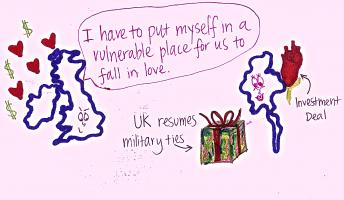 I have to put myself in a
vulnerable place for us to
fall in love.
UK resumes
military ties
Investment
Deal